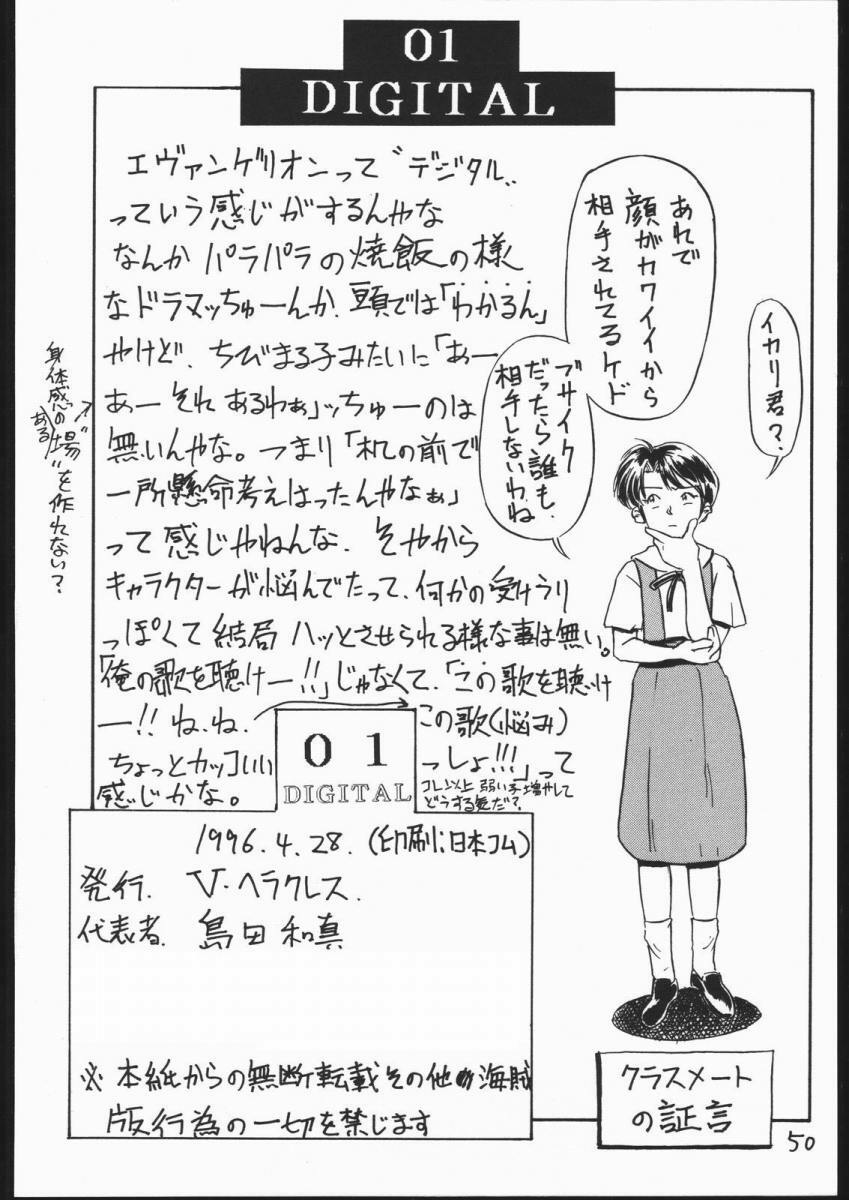 01
DIGITAL
エヴァンゲリオンって〝デジタル〟
っていう感じがするんやな
なんか パラパラの焼飯の様
なドラマッちゅーんか、頭では「わかるん」
やけど、ちびまる子みたいに「あー
あー それ あるわぁ」ッちゅーのは
無いんやな。つまり「机の前で
一所懸命考えはったんやなぁ」
って 感じやねんな、そやから
キャラクターが悩んでたって、何かの受けうり
っぽくて 結局 ハッとさせられる様な事は無い。
「俺の歌を聴けー!!」じゃなくて、「この歌を聴け
ー!! ね、ね、
この歌(悩み)
ちょっとカッコいい
っしょ!!!」って
感じかな。
コレ以上 弱い子増やして
どうする気だ?
身体感の〝場〟を作れない?
ある
イカリ君?
あれで
顔がカワイイから
相手されてるケド
ブサイク
だったら誰も
相手しないわね
01
DIGITAL
1996.4.28.(印刷:日本コム)
発行. V・ヘラクレス.
代表者. 島田 和真
※ 本紙からの無断転載その他の海賊
版行為の一切を禁じます
クラスメート
の証言
50